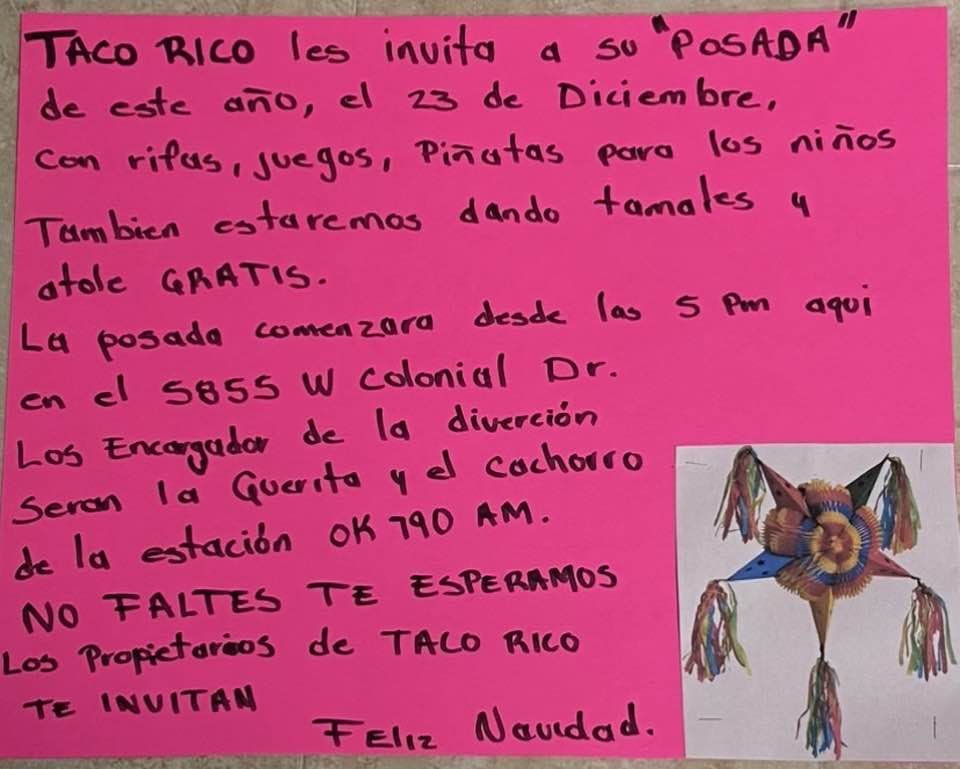 TACO RICO les invita a su "POSADA"
de este año, el 23 de Diciembre,
con rifas, juegos, Piñatas para los niños
Tambien estaremos dando tamales y
atole GRATIS.
La posada comenzara desde las 5 pm aqui
en el 5855 W Colonial Dr.
Los Encargador de la diverción
seran la Guerita y el cachorro
de la estación OK 790 AM.
NO FALTES TE ESPERAMOS
Los Propietarios de TACO RICO
TE INVITAN
FELIZ Navidad.